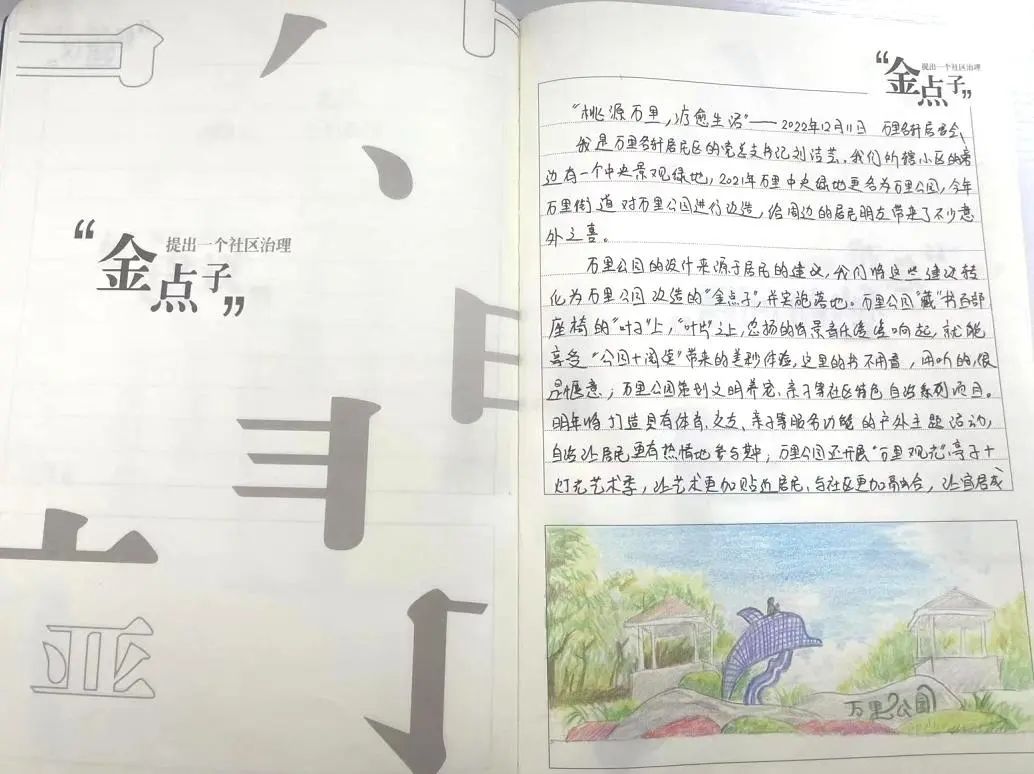 “
提出一个社区治理
金点子
”
“金点子”
提出一个社区治理
“桃源万里,疗愈生活”——2022年12月11日 万里名轩居委会
我是万里名轩居民区的党总支书记刘洁芸,我们所辖小区的旁
边有一个中央景观绿地,2021年万里中央绿地更名为万里公园,今年
万里街道对万里公园进行改造,给周边的居民朋友带来了不少意
外之喜。
万里公园的设计来源于居民的建议,我们将这些建议转
化为万里公园改造的“金点子”,并实施落地。万里公园“藏”书西部
座椅的“叶子”上,“叶片”之上,悠扬的背景音乐缓缓响起,就能
享受“公园+阅览”带来的美妙体验,这里的书不用看,用听的,很
是惬意;万里公园策划文明养宠、亲子等社区特色自治系列项目。
明年将打造具有体育、交友、亲子等服务功能的户外主题活动,
自治让居民更有热情地参与其中,万里公园还开展“万里观花”亭子+
灯光艺术季,让艺术更加贴近居民、与社区更加融合,让宜居成
万里公园